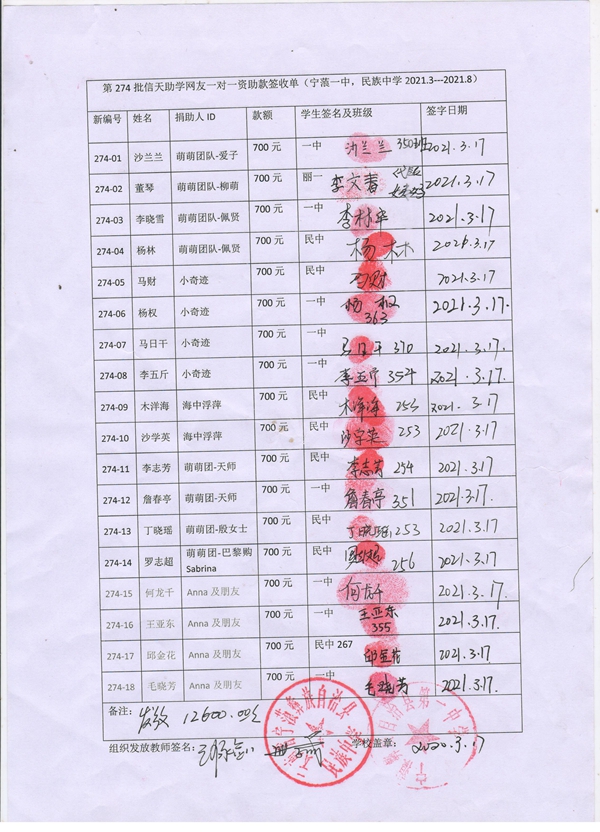 第 274 批信天助学网友一对一资助款签收单（宁蒗一中，民族中学 2021.3---2021.8）
新编号 姓名 捐助人 ID 款额 学生签名及班级 签字日期
274-01 沙兰兰 萌萌团队-爱子 700 元 一中 沙兰兰 350班 2021.3.17
274-02 董琴 萌萌团队-柳萌 700 元 丽一 李文春 2021.3.17
274-03 李晓雪 萌萌团队-佩贤 700 元 一中 2021.3.17
274-04 杨林 萌萌团队-佩贤 700 元 民中 杨林 2021.3.17
274-05 马财 小奇迹 700 元 民中 马财 2021.3.17
274-06 杨权 小奇迹 700 元 一中 杨权 363 2021.3.17.
274-07 马日干 小奇迹 700 元 一中 马日干 370 2021.3.17.
274-08 李五斤 小奇迹 700 元 一中 李五斤 354 2021.3.17.
274-09 木洋海 海中浮萍 700 元 民中 木洋海 256 2021.3.17
274-10 沙学英 海中浮萍 700 元 民中 沙学英 253 2021.3.17
274-11 李志芳 萌萌团-天师 700 元 民中 李志芳 254 2021.3.17.
274-12 詹春亭 萌萌团-天师 700 元 一中 詹春亭 351 2021.3.17.
274-13 丁晓瑶 萌萌团-殷女士 700 元 民中 丁晓瑶 253 2021.3.17
274-14 罗志超 萌萌团-巴黎购 Sabrina 700 元 民中 256 2021.3.17
274-15 何龙千 Anna 及朋友 700 元 一中 何龙千 2021.3.17.
274-16 王亚东 Anna 及朋友 700 元 一中 王亚东 355 2021.3.17.
274-17 邱金花 Anna 及朋友 700 元 民中 267 邱金花 2021.3.17
274-18 毛晓芳 Anna 及朋友 700 元 一中 毛晓芳 2021.3.17.
备注： 发放 12600.00元
组织发放教师签名： 学校盖章： 2020.3.17
宁蒗彝族自治县
民族中学
自治县第一中学